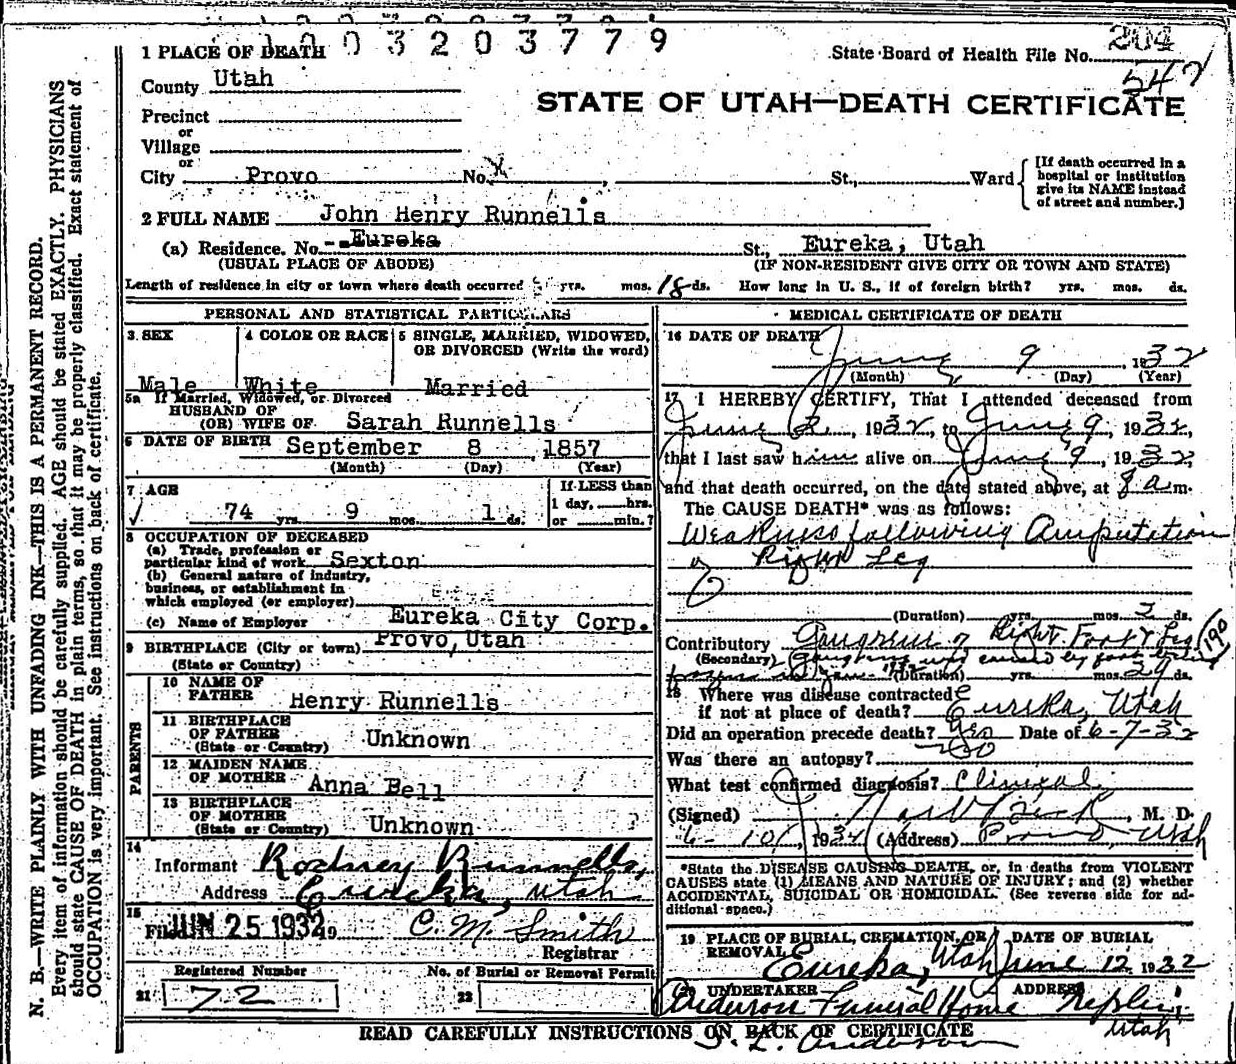 1 0 0 3 2 0 3 7 7 9
1 PLACE OF DEATH
State Board of Health File No. 204
547
County Utah
STATE OF UTAH—DEATH CERTIFICATE
Precinct
or
Village
or
City Provo No. X , St., Ward
[If death occurred in a hospital or institution give its NAME instead of street and number.]
2 FULL NAME John Henry Runnells
(a) Residence. No. Eureka St., Eureka, Utah
(USUAL PLACE OF ABODE) (IF NON-RESIDENT GIVE CITY OR TOWN AND STATE)
Length of residence in city or town where death occurred yrs. mos. 18 ds. How long in U. S., if of foreign birth? yrs. mos. ds.
PERSONAL AND STATISTICAL PARTICULARS
3 SEX
Male
4 COLOR OR RACE
White
5 SINGLE, MARRIED, WIDOWED, OR DIVORCED (Write the word)
Married
5a If Married, Widowed, or Divorced
HUSBAND OF
(OR) WIFE OF Sarah Runnells
6 DATE OF BIRTH September 8 , 1857
(Month) (Day) (Year)
7 AGE
74 yrs. 9 mos. 1 ds.
If LESS than
1 day, hrs.
or min.?
8 OCCUPATION OF DECEASED
(a) Trade, profession or
particular kind of work Sexton
(b) General nature of industry,
business, or establishment in
which employed (or employer)
(c) Name of Employer Eureka City Corp.
9 BIRTHPLACE (City or town) Provo, Utah
(State or Country)
PARENTS
10 NAME OF
FATHER Henry Runnells
11 BIRTHPLACE
OF FATHER Unknown
(State or Country)
12 MAIDEN NAME
OF MOTHER Anna Bell
13 BIRTHPLACE
OF MOTHER
(State or Country) Unknown
14
Informant Rodney Runnells,
Address Eureka, Utah
15
Filed JUN 25 1932 19 C. M. Smith
Registrar
Registered Number
21 72
No. of Burial or Removal Permit
22
MEDICAL CERTIFICATE OF DEATH
16 DATE OF DEATH
June 9 , 1932
(Month) (Day) (Year)
17 I HEREBY CERTIFY, That I attended deceased from
June 2 , 1932, to June 9, 1932,
that I last saw him alive on June 9, 1932,
and that death occurred, on the date stated above, at 8 a m.
The CAUSE DEATH* was as follows:
Weakness following Amputation
of Right Leg
(Duration) yrs. mos. 2 ds.
Contributory Gangrene of Right Foot & Leg 190
(Secondary) Gangrene was caused by foot being
frozen in Jan. 1932 (Duration) yrs. mos. 29 ds.
18 Where was disease contracted
if not at place of death? Eureka, Utah
Did an operation precede death? Yes Date of 6-7-32
Was there an autopsy? No
What test confirmed diagnosis? Clinical
(Signed) , M. D.
6-10, 1932 (Address) Provo, Utah
*State the DISEASE CAUSING DEATH, or, in deaths from VIOLENT
CAUSES state (1) MEANS AND NATURE OF INJURY; and (2) whether
ACCIDENTAL, SUICIDAL OR HOMICIDAL. (See reverse side for ad-
ditional space.)
19 PLACE OF BURIAL, CREMATION, OR
REMOVAL
Eureka, Utah
DATE OF BURIAL
June 12 1932
20 UNDERTAKER
Anderson Funeral Home
ADDRESS
Nephi,
Utah
READ CAREFULLY INSTRUCTIONS ON BACK OF CERTIFICATE
Anderson
N. B.—WRITE PLAINLY WITH UNFADING INK—THIS IS A PERMANENT RECORD.
Every item of information should be carefully supplied. AGE should be stated EXACTLY. PHYSICIANS
should state CAUSE OF DEATH in plain terms, so that it may be properly classified. Exact statement of
OCCUPATION is very important. See instructions on back of certificate.